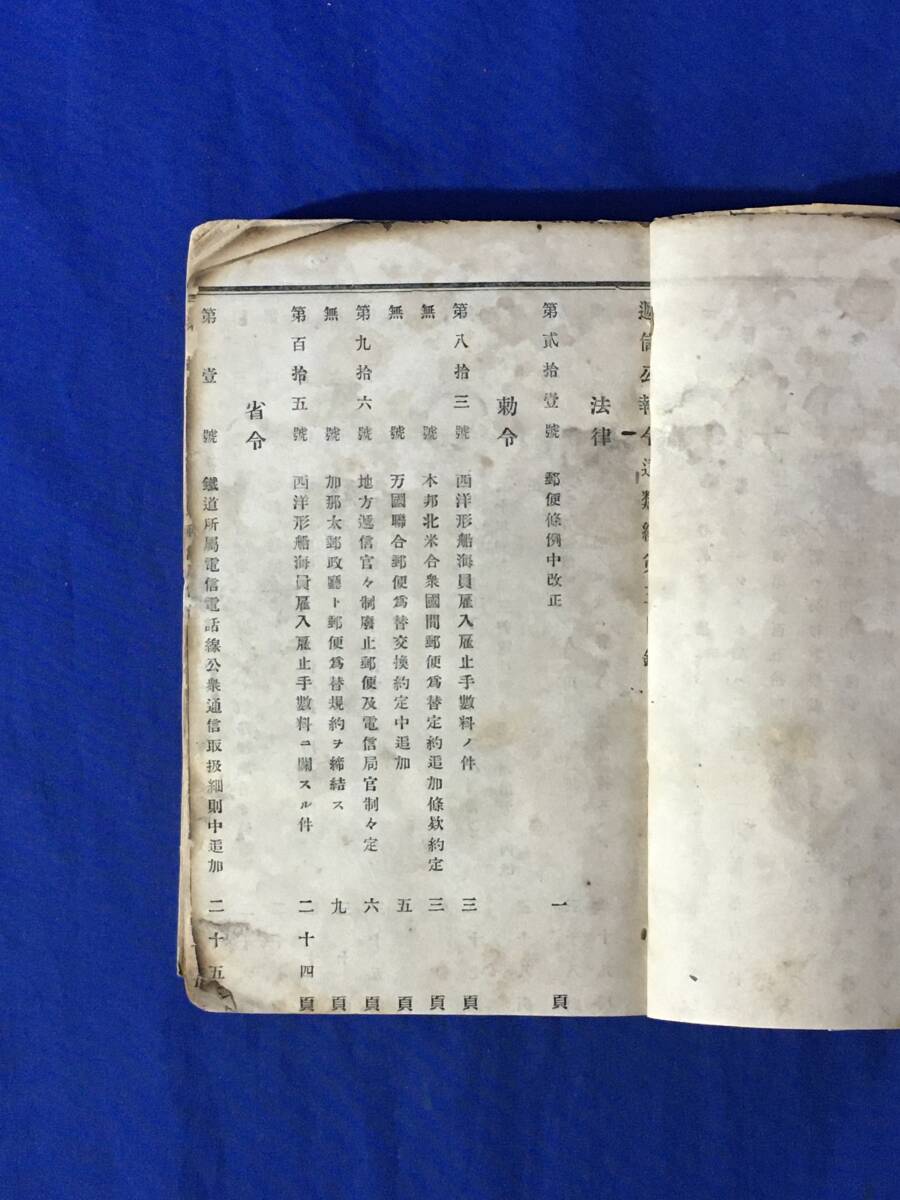 遞信公報令達類纂第
法律
第貳拾壹號 郵便條例中改正 一頁
勅令
第八拾三號 西洋形船海員雇入雇止手數料ノ件 三頁
無號 本邦北米合衆國間郵便爲替定約追加條欵約定 三頁
無號 万國聯合郵便爲替交換約定中追加 五頁
第九拾六號 地方遞信官々制廢止郵便及電信局官制々定 六頁
無號 加那太郵政廳ト郵便爲替規約ヲ締結ス 九頁
第百拾五號 西洋形船海員雇入雇止手數料ニ關スル件 二十四頁
省令
第壹號 鐵道所屬電信電話線公衆通信取扱細則中追加 二十五